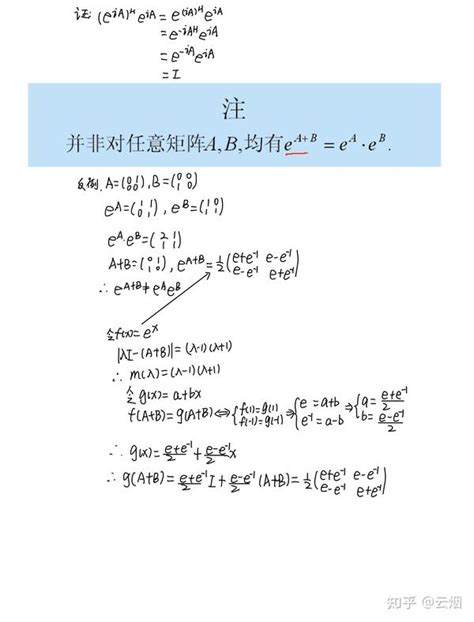 证: (e^{iA})^H e^{iA} = e^{(iA)^H} e^{iA}
= e^{-iA^H} e^{iA}
= e^{-iA} e^{iA}
= I
注
并非对任意矩阵A, B, 均有e^{A+B} = e^A · e^B.
反例. A=(0 1; 0 0), B=(0 0; 1 0)
e^A=(1 1; 0 1), e^B=(1 0; 1 1)
e^A·e^B=(2 1; 1 1)
A+B=(0 1; 1 0), e^{A+B}=½(e+e^{-1} e-e^{-1}; e-e^{-1} e+e^{-1})
∴ e^{A+B}≠e^A e^B
令f(x)=e^x
|λI-(A+B)|=(λ-1)(λ+1)
∴ m(λ)=(λ-1)(λ+1)
令g(x)=a+bx
f(A+B)=g(A+B)⇔{f(1)=g(1) f(-1)=g(-1)⇒{e=a+b e^{-1}=a-b⇒{a=(e+e^{-1})/2 b=(e-e^{-1})/2
∴ g(x)=(e+e^{-1})/2+(e-e^{-1})/2 x
∴ g(A+B)=(e+e^{-1})/2 I+(e-e^{-1})/2 (A+B)=½(e+e^{-1} e-e^{-1}; e-e^{-1} e+e^{-1})
知乎 @云烟